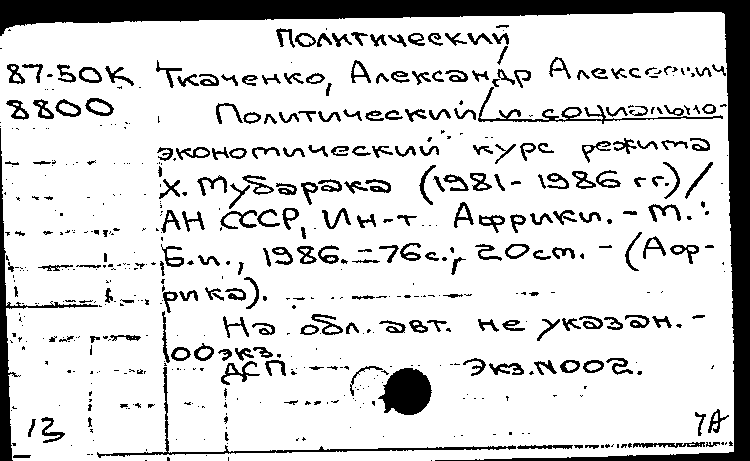 Политический
87-50К Ткаченко, Александр Алексеевич
8800 Политический и социально-
экономический курс режима
Х. Мубарака (1981-1986 гг.)/
АН СССР, Ин-т Африки. - М.:
Б.и., 1986. - 76с.; 20см. - (Аф-
рика).
На обл. авт. не указан. -
100экз.
ДСП. Экз.N002.
13 7А